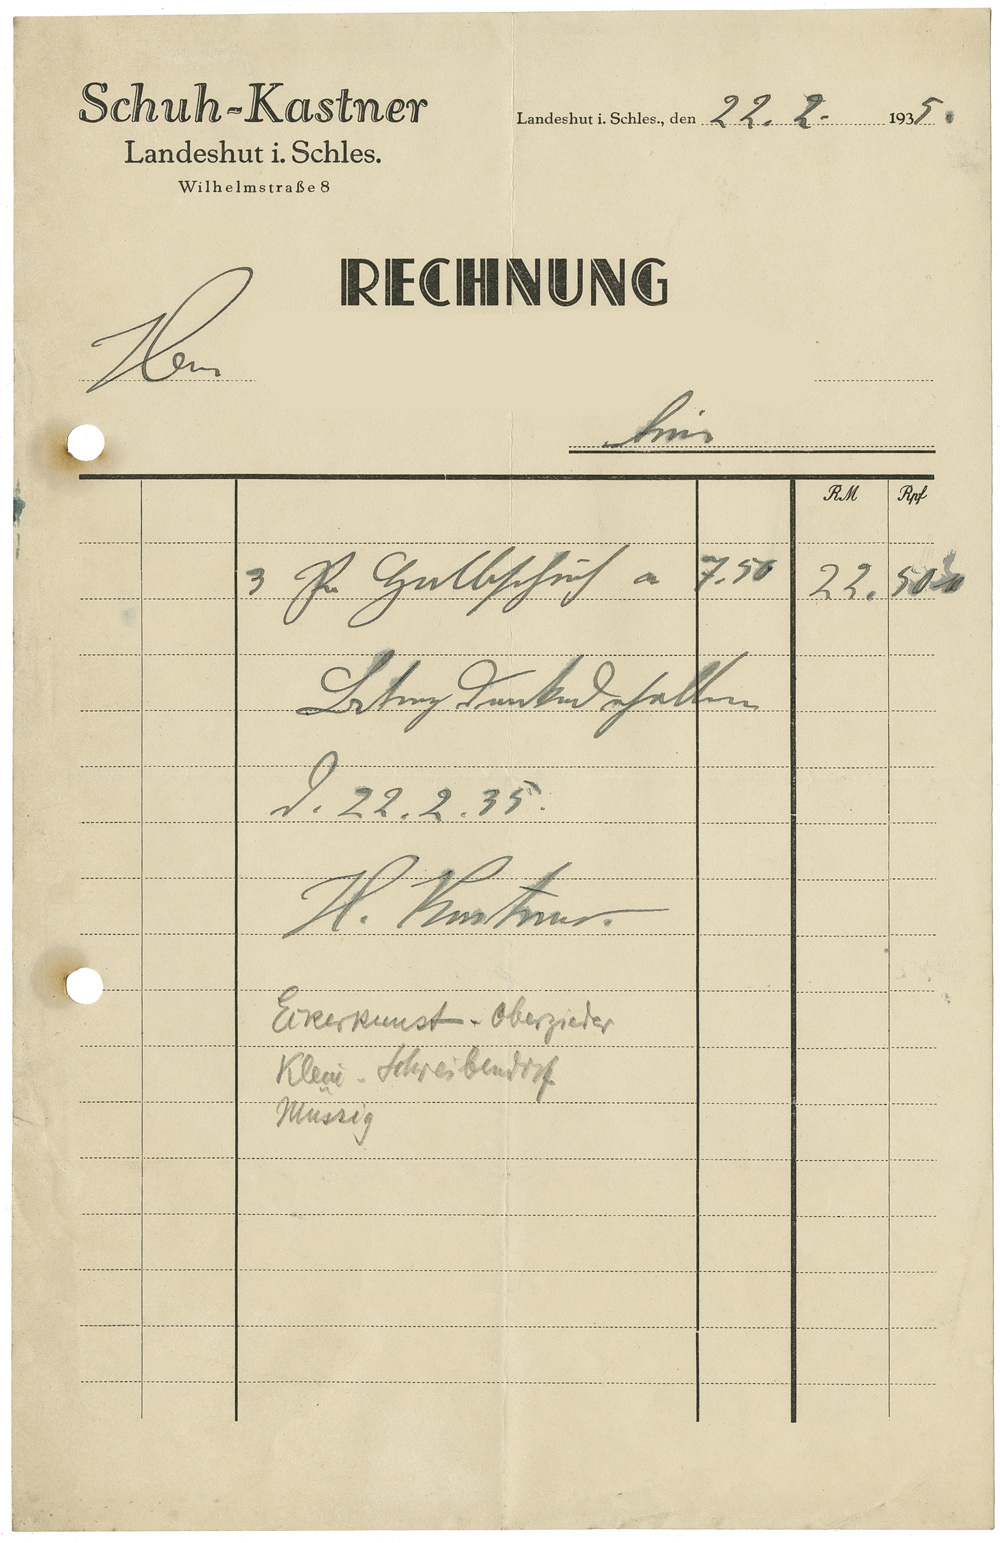 Schuh-Kastner
Landeshut i. Schles.
Wilhelmstraße 8
Landeshut i. Schles., den 22. 2. 1935.
RECHNUNG
Herrn
hier
RM Rpf
3 Pr Halbschuh a 7.50 22. 50
Betrag dankend erhalten
d. 22. 2. 35.
H. Kastner.
Eikerkunst - Oberzieder
Klein - Schreibendorf
Müssig